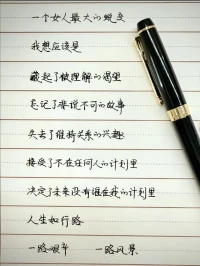 一个女人最大的蜕变
我想应该是
藏起了被理解的渴望
忘记了非说不可的故事
失去了维新关系的兴趣
接受了不在任何人的计划里
决定了未来没有谁在我的计划里
人生如行路
一路艰辛 一路风景